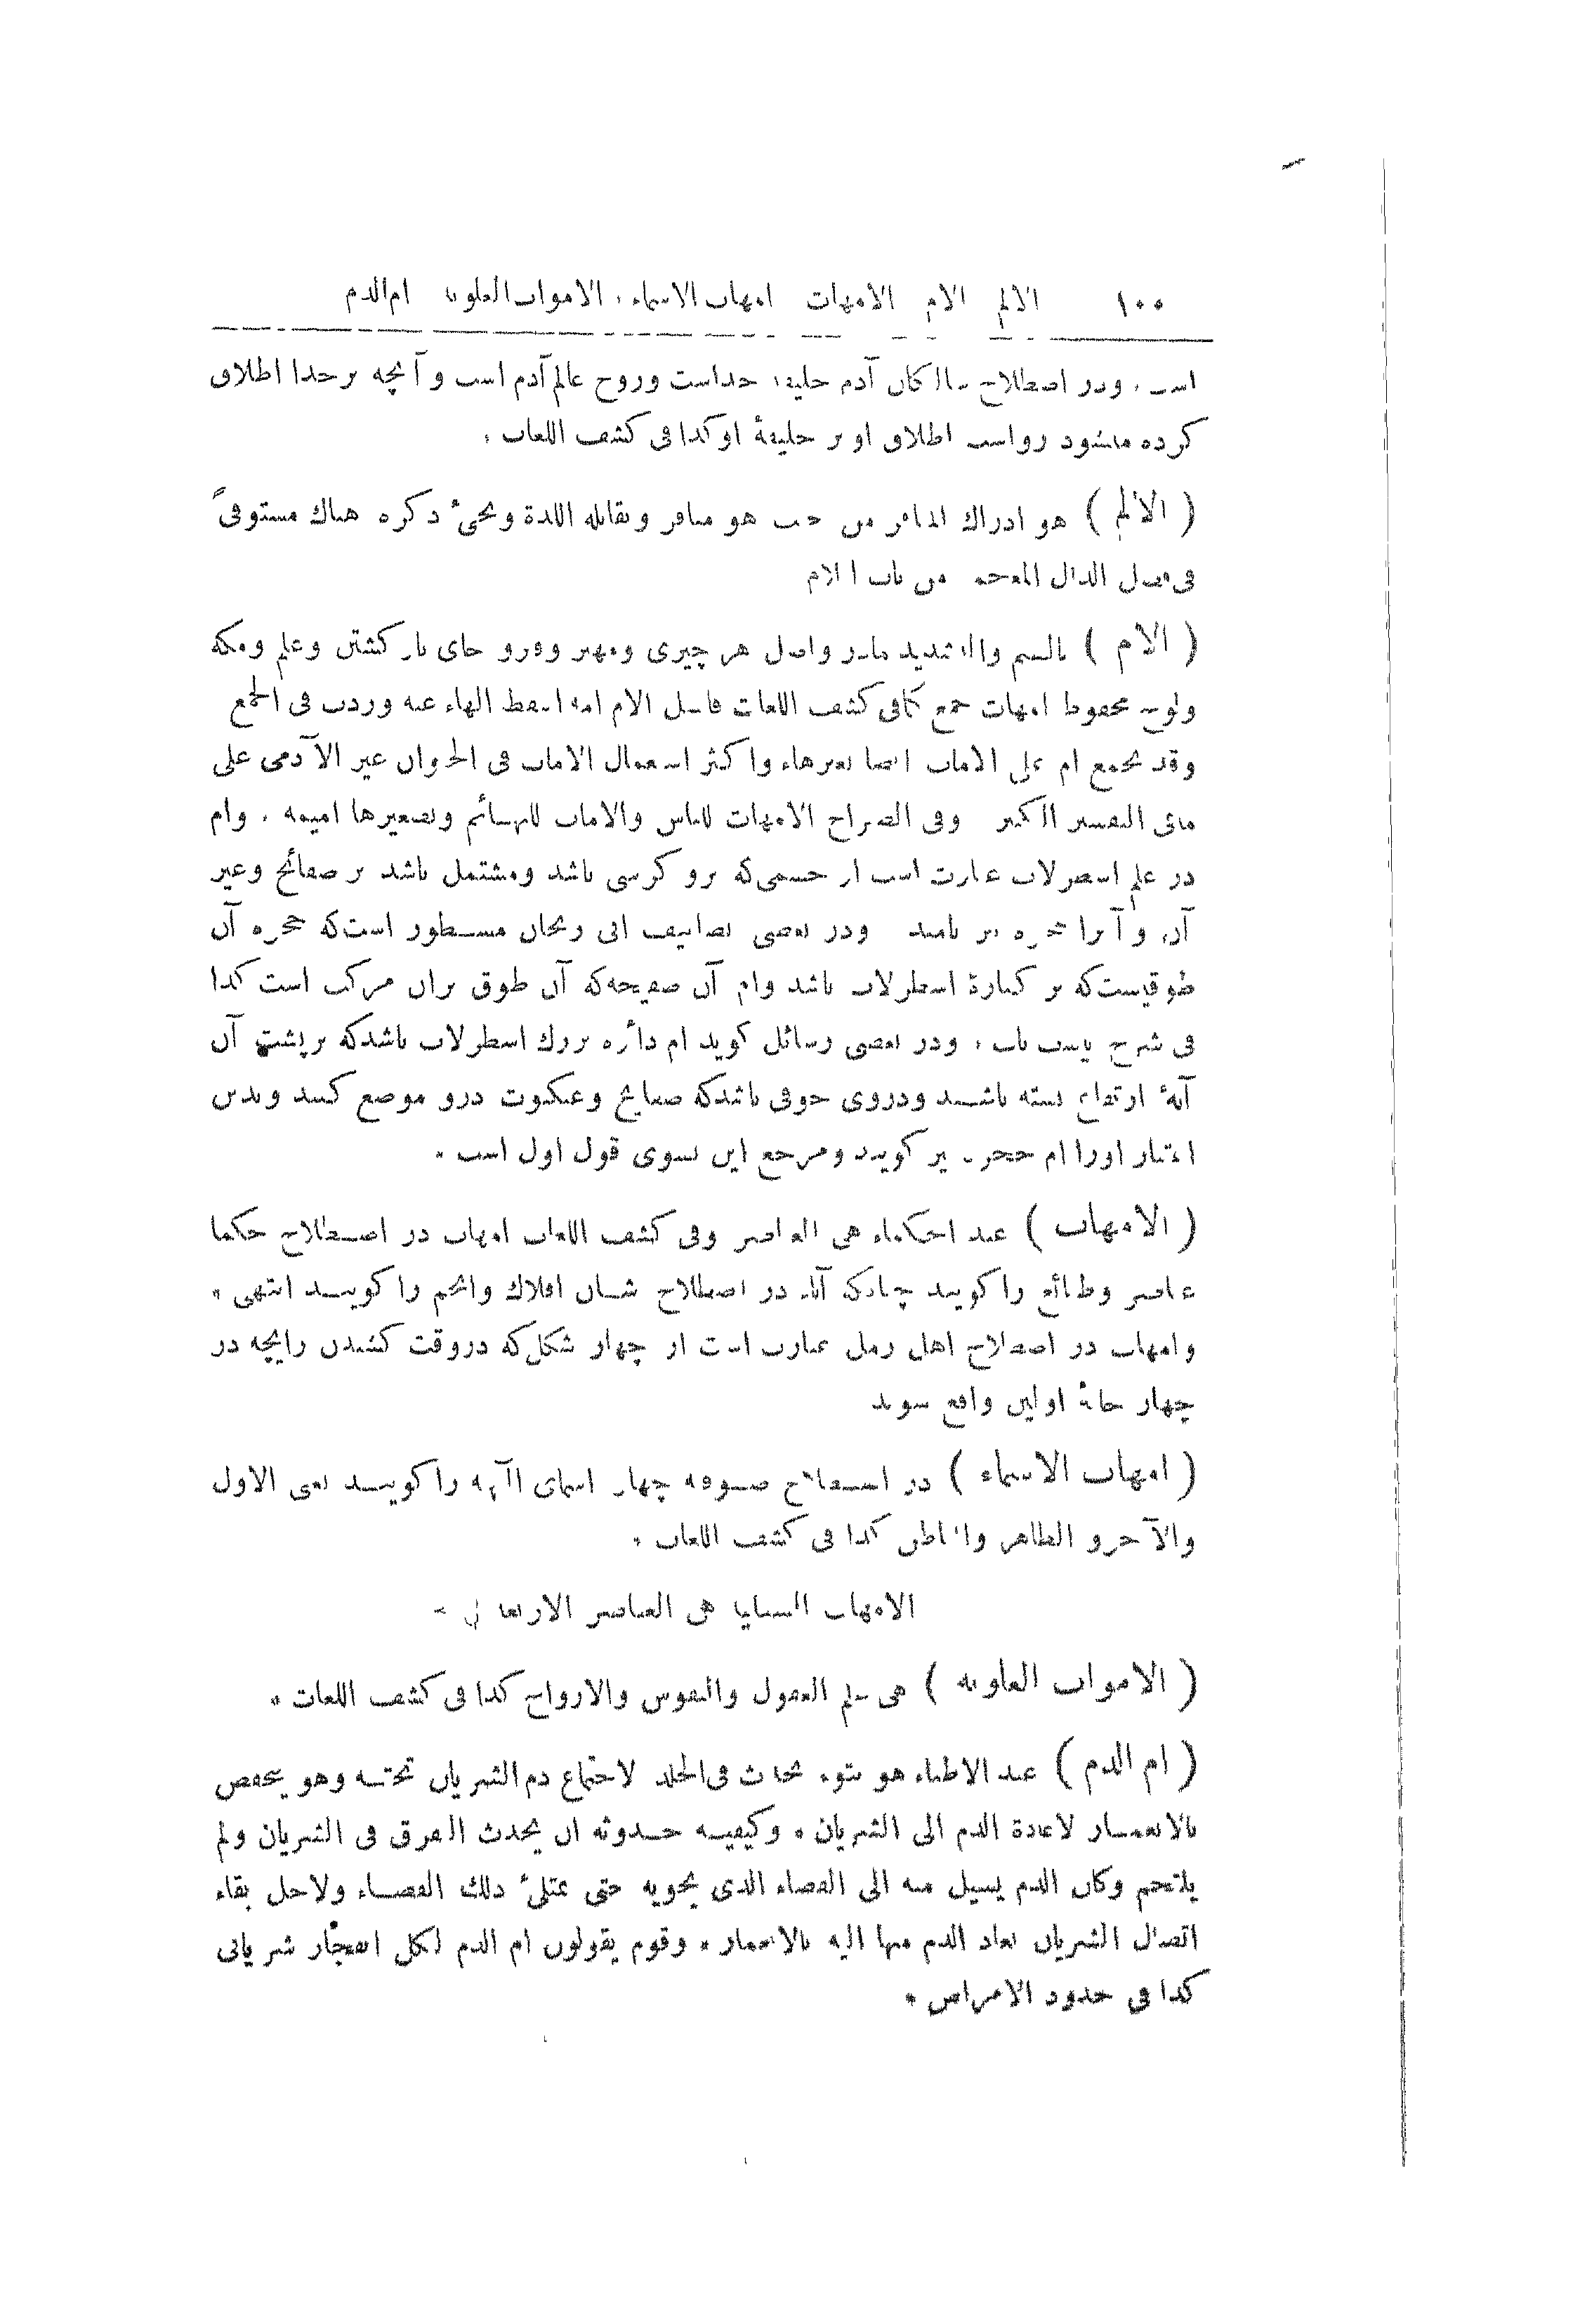 ١٠٠ الالم الام الامهات امهات الاسماء، الاموات العلوية ام الدم
است، ودر اصطلاح سالكان آدم خليفه خداست وروح عالم آدم است و آنچه بر خدا اطلاق
كرده ميشود رواست اطلاق او بر خليفهٔ او كذا فى كشف اللغات،
( الالم ) هو ادراك المنافر من حيث هو منافر ويقابله اللذة ويجىٔ ذكره هناك مستوفىً
فى فصل الذال المعجمة من باب اللام
( الام ) بالضم والتشديد مادر واصل هر چيزى ومهتر وفرو جاى باز گشتن وعلم ومكه
ولوح محفوظ امهات جمع كما فى كشف اللغات فاصل الام امهة اسقط الهاء عنه وردت فى الجمع
وقد يجمع ام على الامات ايضا بغيرهاء واكثر استعمال الامات فى الحيوان غير الآدمى على
مافى التفسير الكبير وفى الصراح الامهات للناس والامات للبهائم وتصغيرها اميمه، وام
در علم اسطرلاب عبارت است از جسمى كه برو كرسى باشد ومشتمل باشد بر صفائح وغير
آن، و آنرا حجره نيز نامند ودر بعضى تصانيف ابى ريحان مسطور است كه حجره آن
طوقيست كه بر كنارهٔ اسطرلاب باشد وام آن صفيحه كه آن طوق بران مركب است كذا
فى شرح بيست باب، ودر بعضى رسائل گويد ام دائره بزرگ اسطرلاب باشد كه بر پشت آن
آيهٔ ارتفاع بسته باشند ودروى جوفى باشد كه صفايح وعنكبوت درو موضع كنند وبدين
اعتبار اورا ام حجره نيز گويند ومرجع اين بسوى قول اول است ۰
( الامهات ) عند الحكماء هى العناصر وفى كشف اللغات امهات در اصطلاح حكما
عناصر وطبائع را گويند چنانكه آباء در اصطلاح شان افلاك وانجم را گويند انتهى ۰
وامهات در اصطلاح اهل رمل عبارت است از چهار شكل كه در وقت كشيدن زايچه در
چهار خانهٔ اولين واقع شوند
( امهات الاسماء ) در اصطلاح صوفيه چهار اسماى الٰهيه را گويند يعنى الاول
والآخر و الظاهر والباطن كذا فى كشف اللغات ۰
الامهات السفليه هى العناصر الاربعة
( الاموات العلويه ) هى علم العقول والنفوس والارواح كذا فى كشف اللغات ۰
( ام الدم ) عند الاطباء هو نتوء يحدث فى الجلد لاجتماع دم الشريان تحته وهو ينخفض
بالانغمار لاعادة الدم الى الشريان ۰ وكيفية حدوثه ان يحدث الفرق فى الشريان ولم
يلتحم وكان الدم يسيل منه الى الفضاء الذى يحويه حتى يمتلىٔ ذلك الفضاء ولاجل بقاء
اتصال الشريان يعاد الدم منها اليه بالانغمار ۰ وقوم يقولون ام الدم لكل انفجار شريانى
كذا فى حدود الامراض ۰